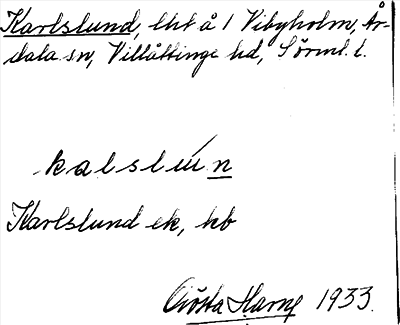 Karlslund, lht å 1 Vibyholm, År-
dala sn, Villåttinge hd, Sörml. l.
kalslún
Karlslund ek, hb
Gösta Harne 1933.